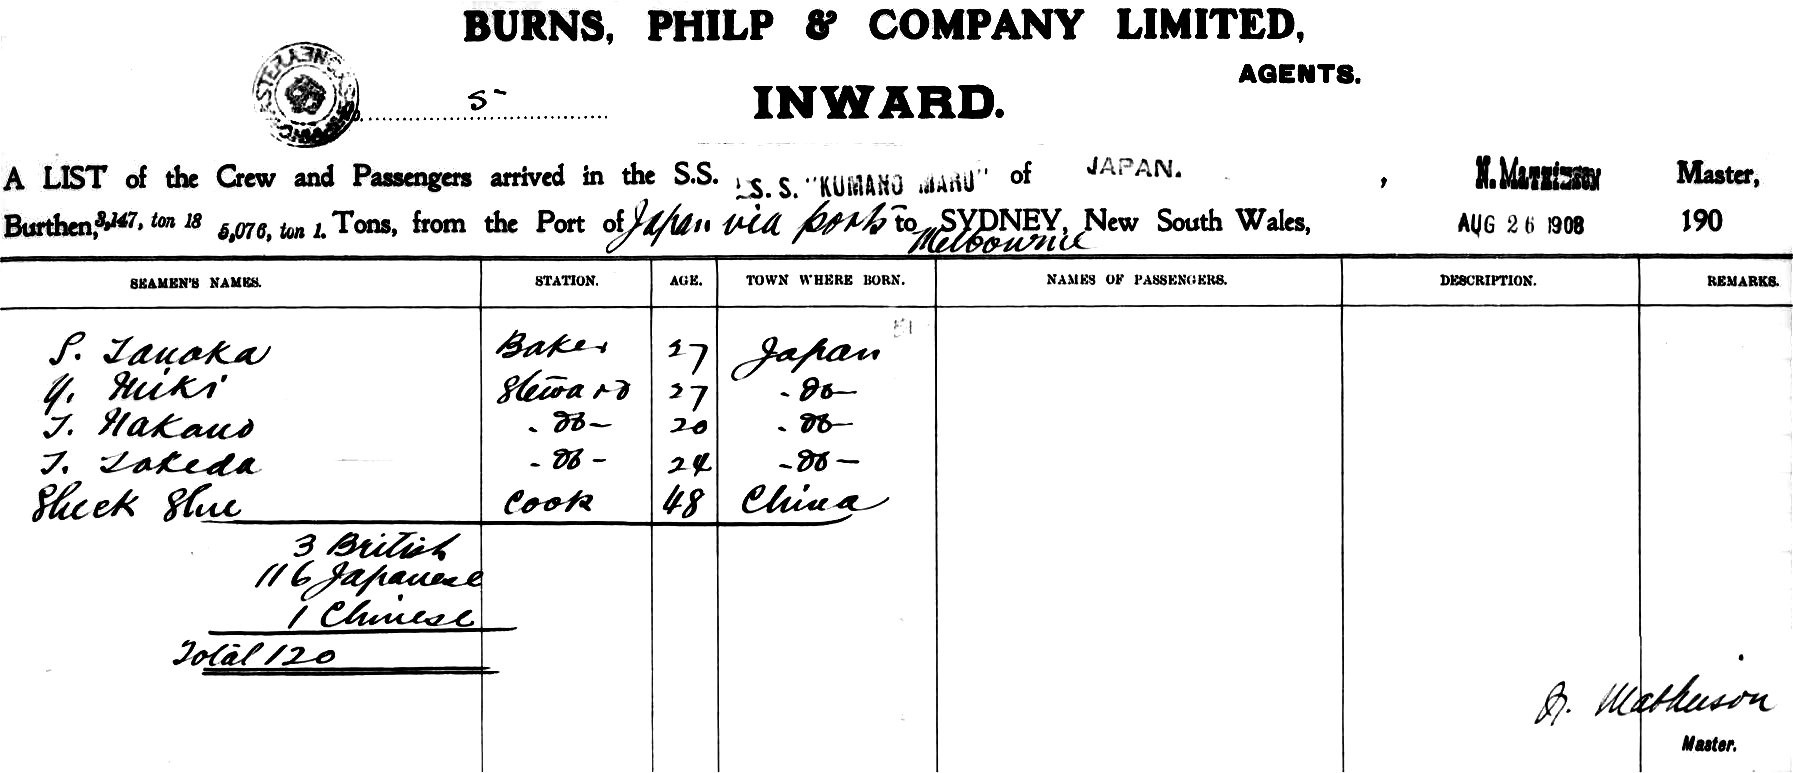 BURNS, PHILP & COMPANY LIMITED,
AGENTS.
5
INWARD.
A LIST of the Crew and Passengers arrived in the S.S. S.S. "KUMANO MARU" of JAPAN. , Master,
Burthen, 3,147, ton 18 5,076, ton 1. Tons, from the Port of Japan via ports to SYDNEY, New South Wales, AUG 26 1908 190
Melbourne
SEAMEN'S NAMES. STATION. AGE. TOWN WHERE BORN. NAMES OF PASSENGERS. DESCRIPTION. REMARKS.
S. Tanoka Baker 27 Japan
Y. Miki Steward 27 - do -
T. Nakano - do - 20 - do -
T. Takeda - do - 24 - do -
Sheek Shue Cook 48 China
3 British
116 Japanese
1 Chinese
Total 120
N. Matheison
Master.